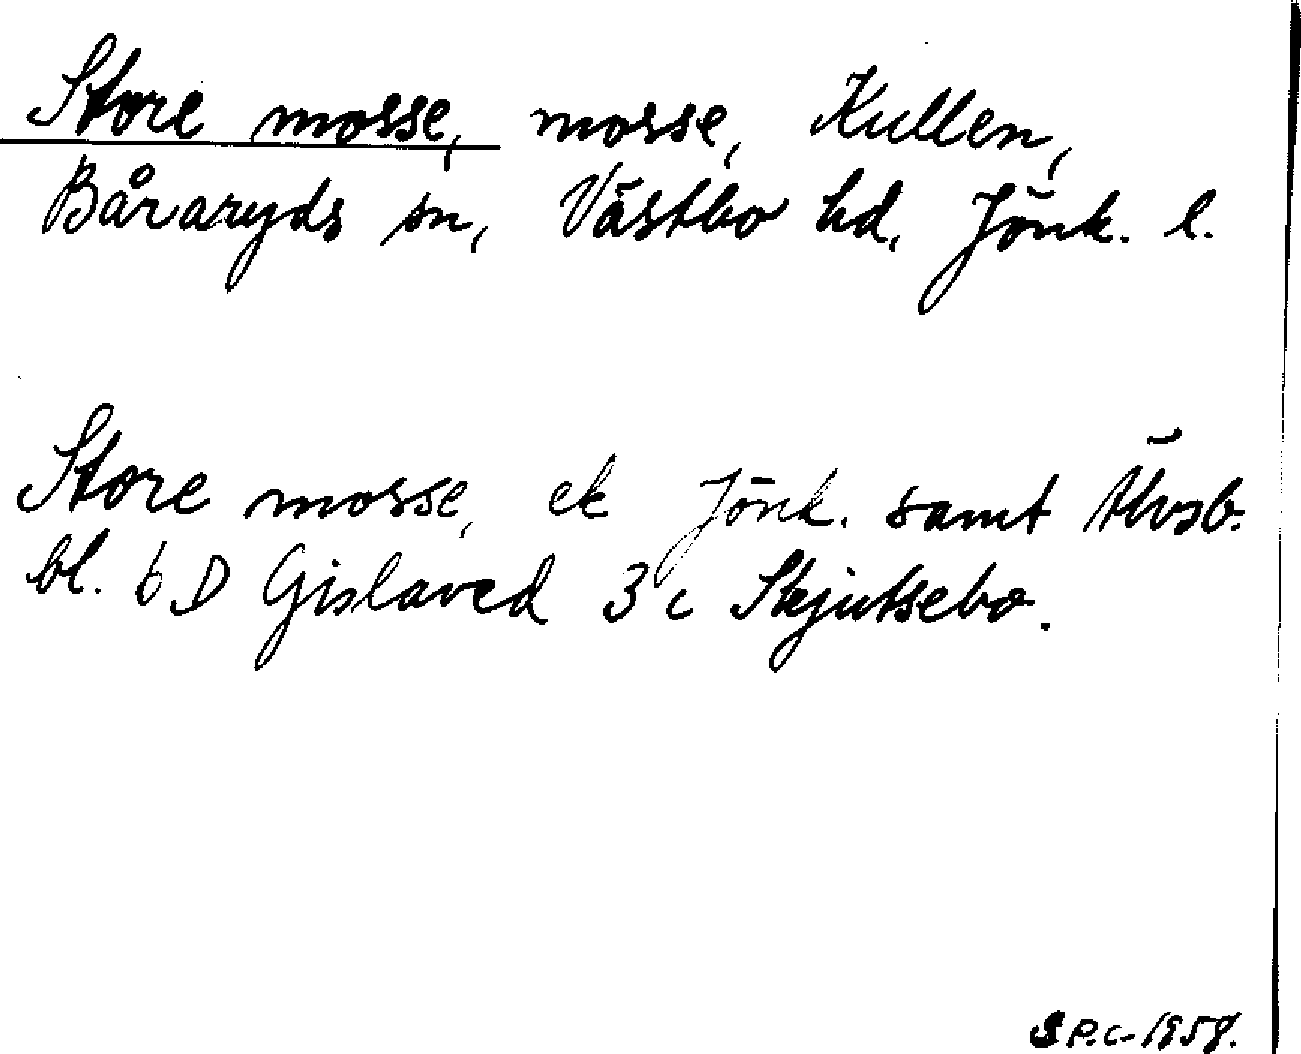 Store mosse, mosse, Kullen,
Båraryds sn, Västbo hd, Jönk. l.
Store mosse, ek Jönk. samt Älvsb.
bl. 6 D Gislaved 3 c Skjutsebo.
S.P.C. 1958.